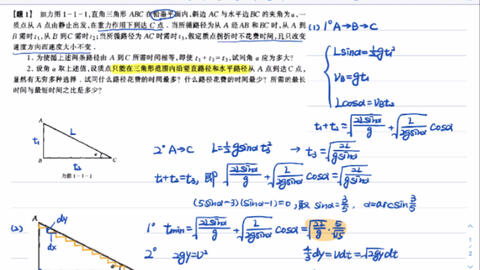 【题1】如力图1-1-1,在直角三角形 ABC 在铅垂平面内,斜边 AC 与水平边 BC 的夹角为α,一
质点从 A 点由静止出发,在重力作用下到达 C 点.当所循路径为从 A 经 AB 和 BC 时,从 A 到
B 需时 t₁,从 B 到 C 需时 t₂;当所循路径为 AC 时需时 t₃.假定质点拐折时不花费时间,且只改变
速度方向而速度大小不变.
1. 为使循上述两条路径由 A 到 C 所需时间相等,即使 t₁+t₂=t₃,试问角 α 应为多大?
2. 设角 α 取上述值,设质点只能在三角形范围内沿竖直路径和水平路径从 A 点到达 C 点,
显然有无穷多种选择.试问什么路径花费的时间最多?什么路径花费的时间最少?所需的最长
时间与最短时间之比是多少?
(1) 1° A→B→C
Lsinα=½gt₁²
v_B=gt₁
Lcosα=v_Bt₂
t₁+t₂=√(2Lsinα/g)+√(L/2gsinα) cosα
A
L
t₁
B
t₂
C
力图 1-1-1
2° A→C L=½gsinα t₃² → t₃=√(2L/gsinα)
t₁+t₂=t₃, 即 √(2Lsinα/g)+√(L/2gsinα) cosα=√(2L/gsinα)
(5sinα-3)(sinα-1)=0, 取 sinα=3/5, α=arcsin 3/5
(2)
A
dy
dx
1° t_min=√(2Lsinα/g)+√(L/2gsinα) cosα=√(2L/g)·5/√15
2° 2gy=v²
4/3 dy=vdt=√(2gy) dt